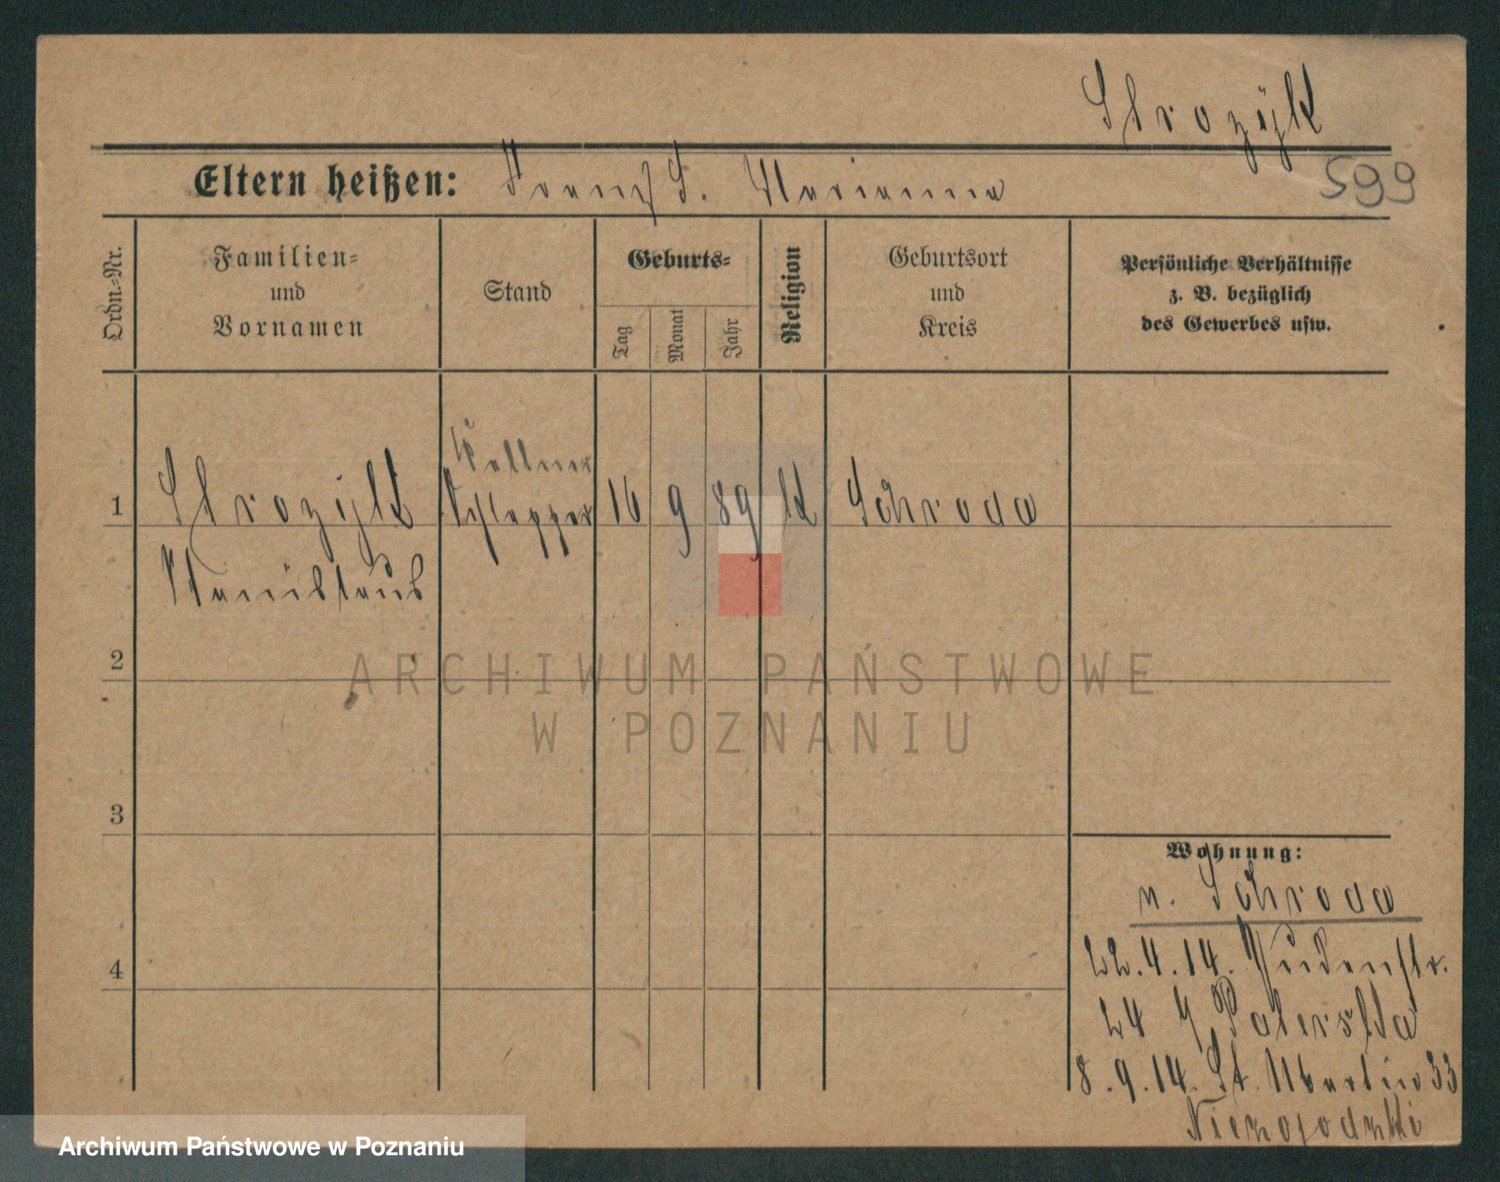 Strozyk
Eltern heißen: Franz S. Marianna
599
Ordn.-Nr.
Familien-
und
Vornamen
Stand
Geburts-
Tag
Monat
Jahr
Religion
Geburtsort
und
Kreis
Persönliche Verhältnisse
z. B. bezüglich
des Gewerbes usw.
Kellner
1 Strozyk 16 9 89 K Schroda
Stanislaus
2
ARCHIWUM PAŃSTWOWE
W POZNANIU
3
Wohnung:
n. Schroda
22.4.14. Judenstr.
24
8.9.14. St. Martin 33
Archiwum Państwowe w Poznaniu